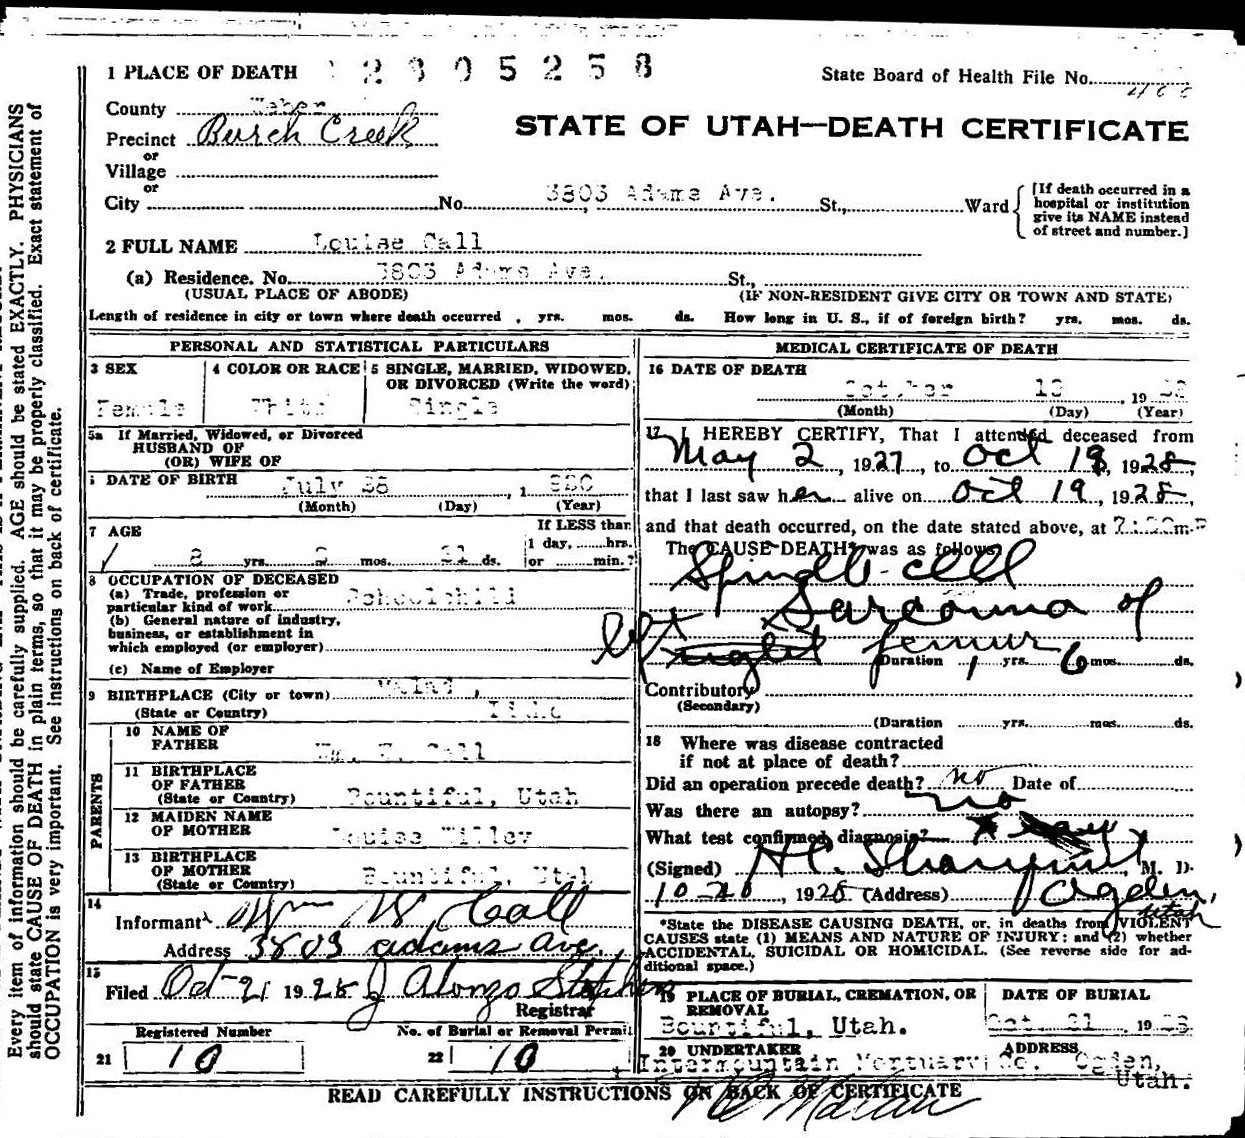 1 PLACE OF DEATH 2805258
State Board of Health File No.
County Weber
Precinct Burch Creek
STATE OF UTAH—DEATH CERTIFICATE
or
Village
or
City No. 3803 Adams Ave. St., Ward
[If death occurred in a
hospital or institution
give its NAME instead
of street and number.]
2 FULL NAME Louise Call
(a) Residence. No. 3803 Adams Ave. St.,
(USUAL PLACE OF ABODE) (IF NON-RESIDENT GIVE CITY OR TOWN AND STATE)
Length of residence in city or town where death occurred , yrs. mos. ds. How long in U. S., if of foreign birth? yrs. mos. ds.
PERSONAL AND STATISTICAL PARTICULARS
3 SEX
Female
4 COLOR OR RACE
White
5 SINGLE, MARRIED, WIDOWED,
OR DIVORCED (Write the word)
Single
5a If Married, Widowed, or Divorced
HUSBAND OF
(OR) WIFE OF
DATE OF BIRTH July 28 1920
(Month) (Day) (Year)
7 AGE
8 yrs. 2 mos. 21 ds.
If LESS than
1 day, hrs.
or min.?
8 OCCUPATION OF DECEASED
(a) Trade, profession or
particular kind of work Schoolchild
(b) General nature of industry,
business, or establishment in
which employed (or employer)
(c) Name of Employer
9 BIRTHPLACE (City or town) Malad,
(State or Country) Idaho
PARENTS
10 NAME OF
FATHER Wm. W. Call
11 BIRTHPLACE
OF FATHER
(State or Country) Bountiful, Utah
12 MAIDEN NAME
OF MOTHER Louise Willey
13 BIRTHPLACE
OF MOTHER
(State or Country) Bountiful, Utah
14
Informant Wm W Call
Address 3803 Adams Ave.
15
Filed Oct-21 1928 J Alonzo Stephens
Registrar
Registered Number
21 10
No. of Burial or Removal Permit
22 10
MEDICAL CERTIFICATE OF DEATH
16 DATE OF DEATH
October 19, 1928
(Month) (Day) (Year)
17 I HEREBY CERTIFY, That I attended deceased from
May 2, 1927, to Oct 19, 1928,
that I last saw her alive on Oct 19, 1928,
and that death occurred, on the date stated above, at m. P
The CAUSE DEATH* was as follows
Spindle-cell
Sarcoma of
left right femur
Duration 1 yrs. 6 mos. ds.
Contributory
(Secondary)
(Duration yrs. mos. ds.
18 Where was disease contracted
if not at place of death?
Did an operation precede death? no Date of
Was there an autopsy? no
What test confirmed diagnosis? X-ray
(Signed) M. D.
10-20, 1928 (Address) Ogden,
Utah
*State the DISEASE CAUSING DEATH, or, in deaths from VIOLENT
CAUSES state (1) MEANS AND NATURE OF INJURY; and (2) whether
ACCIDENTAL, SUICIDAL OR HOMICIDAL. (See reverse side for ad-
ditional space.)
19 PLACE OF BURIAL, CREMATION, OR
REMOVAL
Bountiful, Utah.
DATE OF BURIAL
Oct. 21 1928
20 UNDERTAKER
Intermountain Mortuary Co.
ADDRESS
Ogden,
Utah.
READ CAREFULLY INSTRUCTIONS ON BACK OF CERTIFICATE
Every item of information should be carefully supplied. AGE should be stated EXACTLY. PHYSICIANS
should state CAUSE OF DEATH in plain terms, so that it may be properly classified. Exact statement of
OCCUPATION is very important. See instructions on back of certificate.